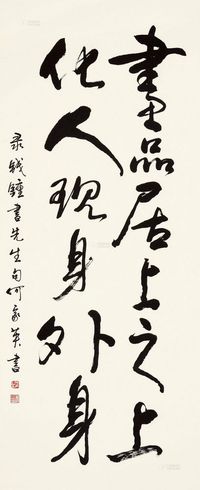 畫品居上之上
化人現身外身
录钱锺書先生句何家英書